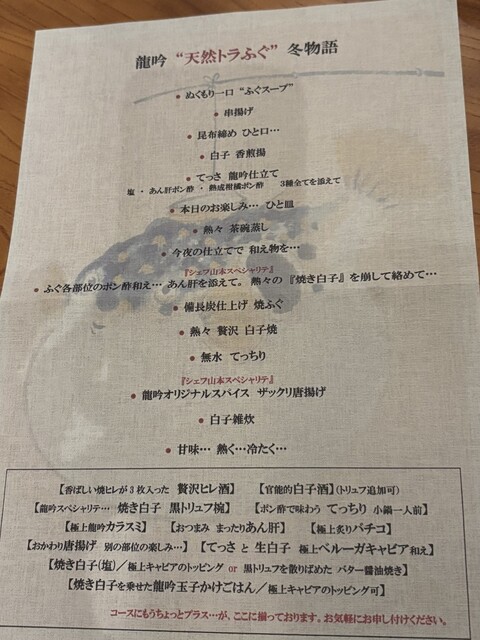 龍吟 “天然トラふぐ” 冬物語
● ぬくもり一口 “ふぐスープ”
● 串揚げ
● 昆布締め ひと口…
● 白子 香煎揚
● てっさ 龍吟仕立て
塩 ・ あん肝ポン酢 ・ 熟成柑橘ポン酢 3種全てを添えて
● 本日のお楽しみ… ひと皿
● 熱々 茶碗蒸し
● 今夜の仕立てで 和え物を…
『シェフ山本スペシャリテ』
● ふぐ各部位のポン酢和え… あん肝を添えて。 熱々の 『焼き白子』 を崩して絡めて…
● 備長炭仕上げ 焼ふぐ
● 熱々 贅沢 白子焼
● 無水 てっちり
『シェフ山本スペシャリテ』
● 龍吟オリジナルスパイス ザックリ唐揚げ
● 白子雑炊
● 甘味… 熱く…冷たく…
【香ばしい焼ヒレが3枚入った 贅沢ヒレ酒】 【官能的白子酒】(トリュフ追加可)
【龍吟スペシャリテ… 焼き白子 黒トリュフ椀】 【ポン酢で味わう てっちり 小鍋一人前】
【極上龍吟カラスミ】 【おつまみ まったりあん肝】 【極上炙りバチコ】
【おかわり唐揚げ 別の部位の楽しみ…】 【てっさ と 生白子 極上ベルーガキャビア和え】
【焼き白子(塩)／極上キャビアのトッピング or 黒トリュフを散りばめた バター醤油焼き】
【焼き白子を乗せた龍吟玉子かけごはん／極上キャビアのトッピング可】
コースにもうちょっとプラス…が、ここに揃っております。お気軽にお申し付けください。